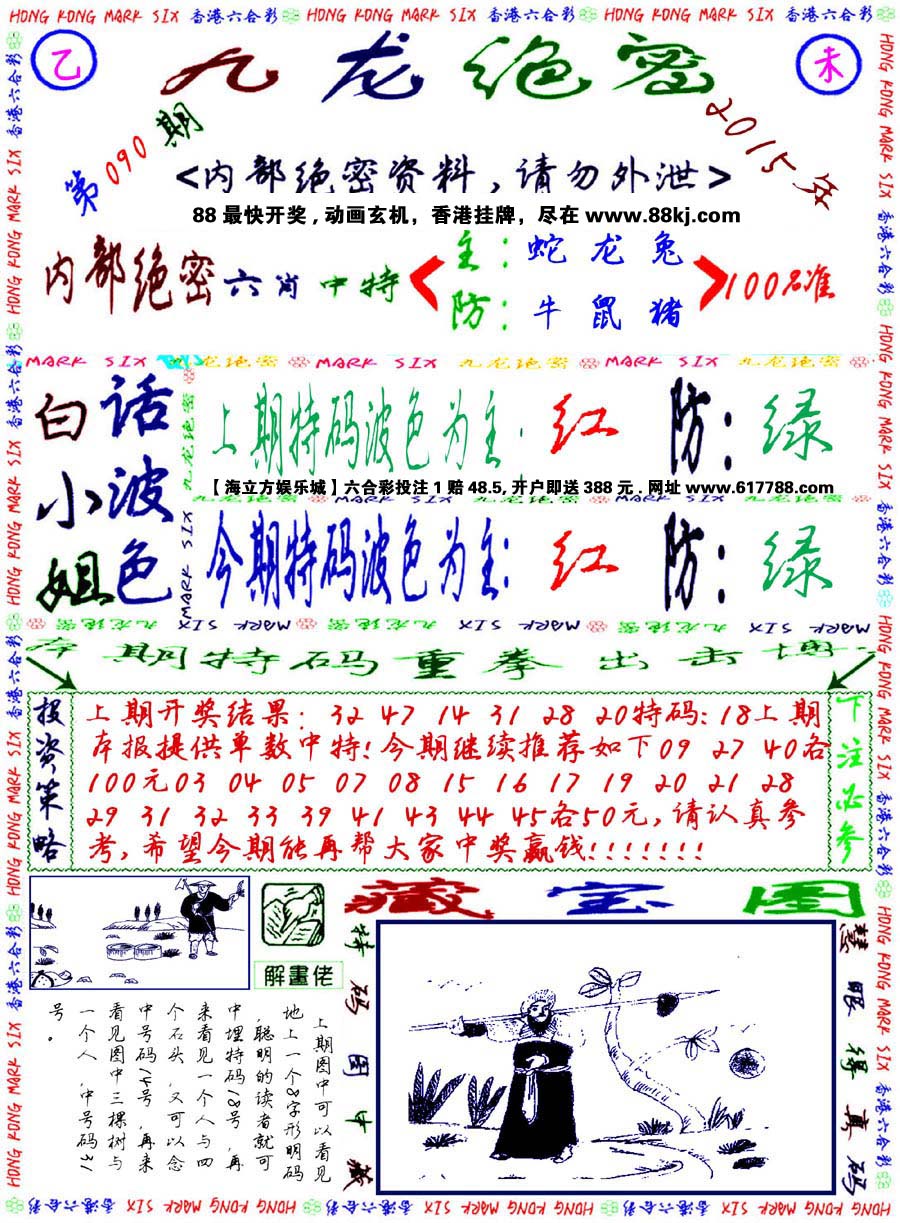 HONG KONG MARK SIX 香港六合彩 HONG KONG MARK SIX 香港六合彩 HONG KONG MARK SIX 香港六合彩
乙
九龙绝密
未
第090期
2015年
<内部绝密资料,请勿外泄>
88最快开奖,动画玄机,香港挂牌,尽在 www.88kj.com
内部绝密六肖中特
主:蛇龙兔
防:牛鼠猪
100%准
MARK SIX 九龙绝密 MARK SIX 九龙绝密 MARK SIX 九龙绝密
白小姐
话波色
上期特码波色为主:红 防:绿
【海立方娱乐城】六合彩投注1赔48.5,开户即送388元.网址 www.617788.com
今期特码波色为主:红 防:绿
MARK SIX 九龙绝密 MARK SIX 九龙绝密 MARK SIX 九龙绝密
本期特码重拳出击
投资策略
上期开奖结果:32 47 14 31 28 20特码:18上期
本报提供单数中特!今期继续推荐如下09 27 40各
100元03 04 05 07 08 15 16 17 19 20 21 28
29 31 32 33 39 41 43 44 45各50元,请认真参
考,希望今期能再帮大家中奖赢钱!!!!!!!
下注必参
解畫佬
藏宝图
特码图中藏
慧眼得真码
上期图中可以看见
地上一个8字形明码
,聪明的读者就可
中埋特码18号,再
来看见一个人与四
个石头,又可以念
中号码14号,再来
看见图中三棵树与
一个人,中号码31
号。
HONG KONG MARK SIX 香港六合彩 HONG KONG MARK SIX 香港六合彩 HONG KONG MARK SIX 香港六合彩